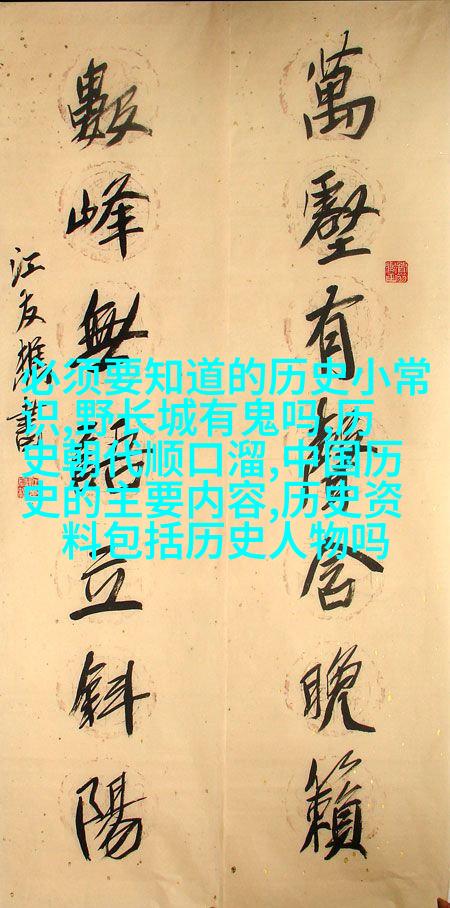 萬壑有聲含晚籟
數峰無語立斜陽
江友樵書
必须要知道的历史小常
识,野长城有鬼吗,历
史朝代顺口溜,中国历
史的主要内容,历史资
料包括历史人物吗